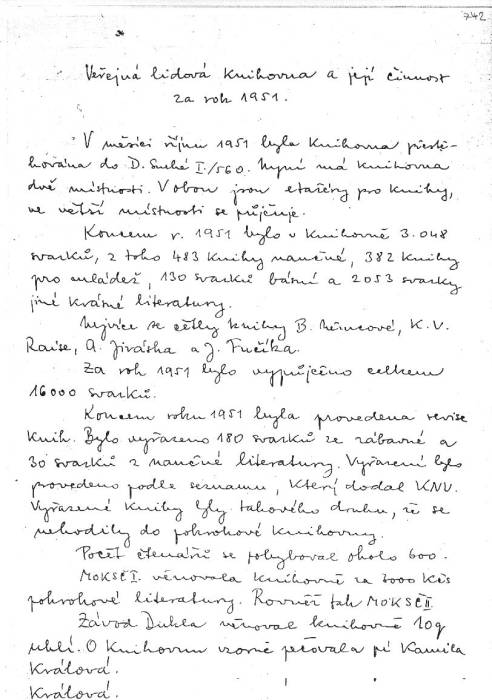 742
Veřejná lidová knihovna a její činnost
za rok 1951.
V měsíci říjnu 1951 byla knihovna přestě-
hována do D. Suché I./560. Nyní má knihovna
dvě místnosti. V obou jsou etažéry pro knihy,
ve větší místnosti se půjčuje.
Koncem r. 1951 bylo v knihovně 3.048
svazků, z toho 483 knihy naučné, 382 knihy
pro mládež, 130 svazků básní a 2053 svazky
jiné krásné literatury.
Nejvíce se četly knihy B. Němcové, K. V.
Raise, A. Jiráska a J. Fučíka.
Za rok 1951 bylo vypůjčeno celkem
16000 svazků.
Koncem roku 1951 byla provedena revise
knih. Bylo vyřazeno 180 svazků ze zábavné a
30 svazků z naučné literatury. Vyřazení bylo
provedeno podle seznamu, který dodal KNV.
Vyřazené knihy byly takového druhu, že se
nehodily do pokrokové knihovny.
Počet čtenářů se pohyboval okolo 600.
MOKSČ I. věnovala knihovně za 3000 Kčs
pokrokové literatury. Rovněž tak MOKSČ II.
Závod Dukla věnoval knihovně 10q
uhlí. O knihovnu vzorně pečovala pí Kamila
Králová.
Králová.